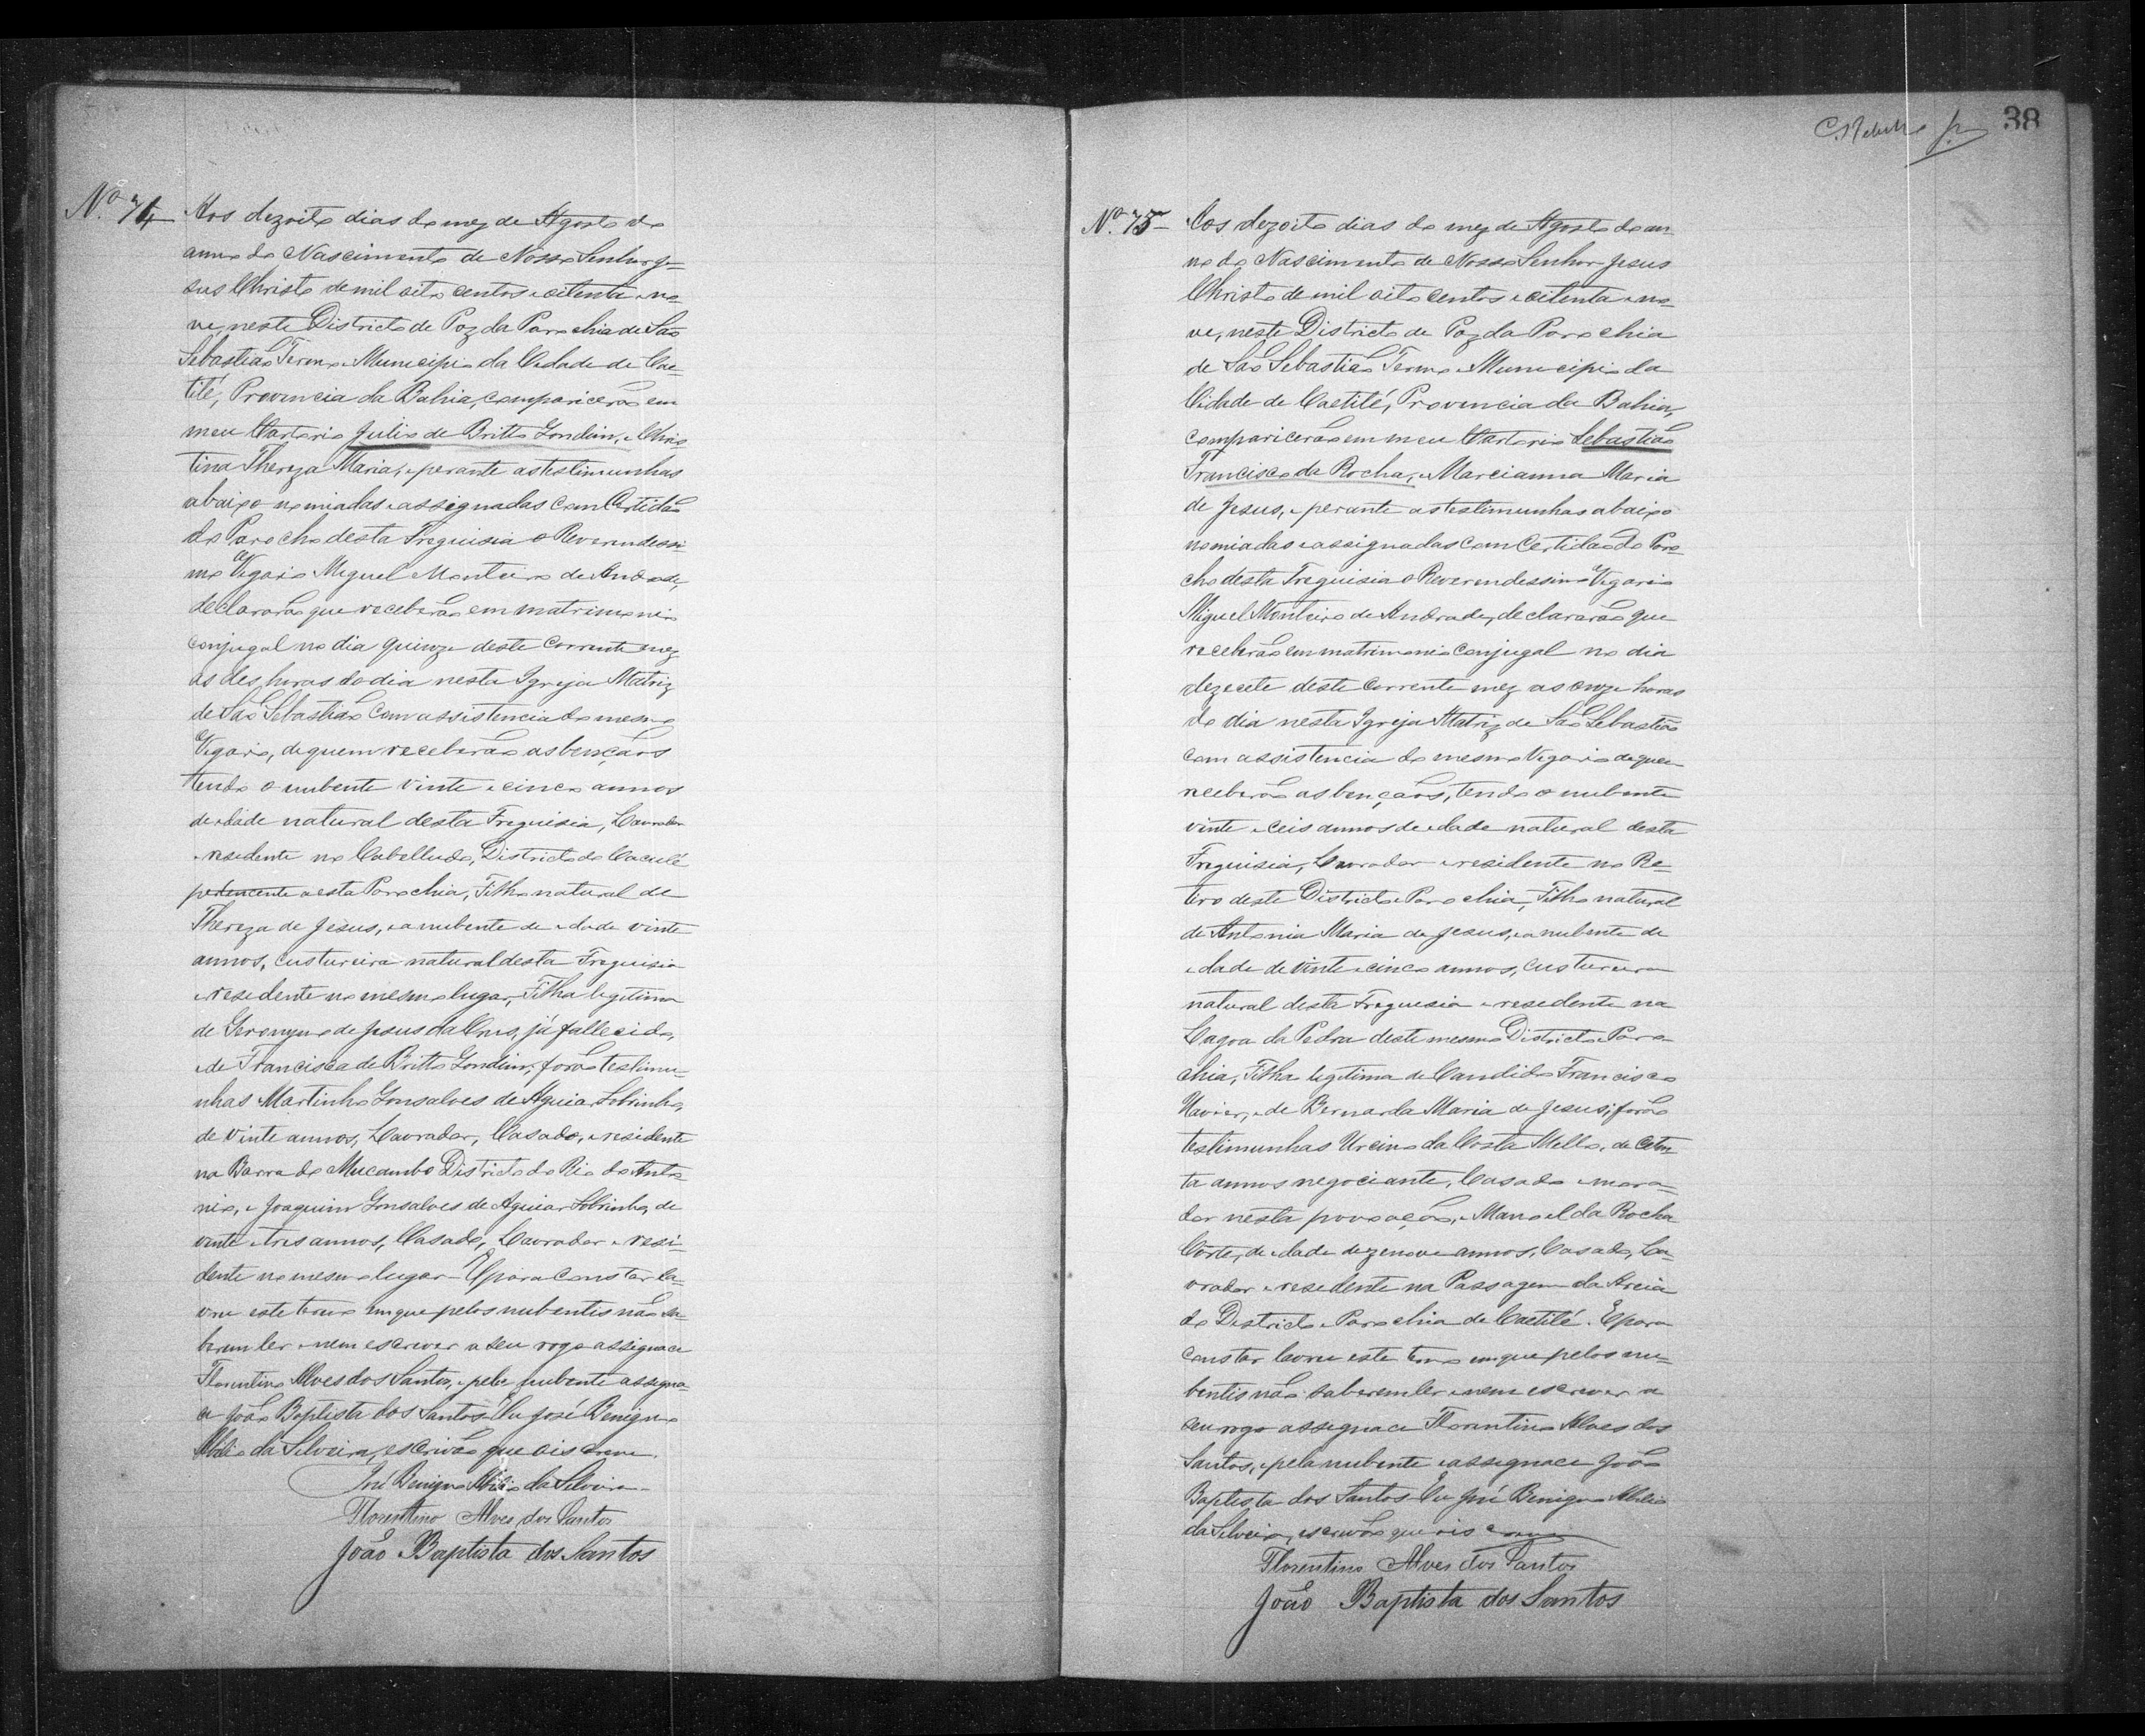 Nº 74 Aos dezoito dias do mez de Agosto do
anno do Nascimento de Nosso Senhor Je-
sus Christo de mil oito centos e oitenta e no-
ve, neste Districto de Paz da Parochia de São
Sebastião Termo e Municipio da Cidade de Cae-
tité, Provincia da Bahia, comparicerão em
meu Cartorio Julio de Britto Gondim, e Chris
tina Thereza Maria, e perante as testimunhas
abaixo nomiadas e assignadas com Certidão
do Parocho desta Freguisia o Reverendessi-
mo Vigario Miguel Monteiro de Andrade,
declararão que receberão em matrimonio
conjugal no dia quinze deste corrente mez
as des horas do dia nesta Igreja Matriz
de São Sebastião com assistencia do mesmo
Vigario, de quem receberão as bençãos
tendo o nubente vinte e cinco annos
de edade natural desta Freguisia, Lavrador
e residente no Cabelludo, Districto do Caculé
petencente a esta Parochia, Filho natural de
Thereza de Jesus, e a nubente de edade vinte
annos, custureira natural desta Freguisia
e residente no mesmo lugar, Filha legitima
de Geronymo de Jesus da Crus, já fallecido,
e de Francisca de Britto Gondim; forão testimu-
nhas Martinho Gonsalves de Aguiar Sobrinho,
de vinte annos, Lavrador, Casado, e residente
na Barra do Mucambo Districto do Rio do Anto-
nio, e Joaquim Gonsalves de Aguiar Sobrinho, de
vinte e tres annos, Casado, Lavrador e resi-
dente no mesmo lugar. E para constar la-
vrei este termo em que pelos nubentis não sa-
berem ler e nem escrever a seu rogo assignace
Florentino Alves dos Santos, e pela nubente assigna-
ce João Baptista dos Santos. Eu José Benigno
Abilio da Silveira, escrivão que ois crevi.
José Benigno Abilio da Silveira
Florentino Alves dos Santos
João Baptista dos Santos
38
Nº 75 Aos dezoito dias do mez de Agosto do an-
no do Nascimento de Nosso Senhor Jesus
Christo de mil oito centos e oitenta e no-
ve, neste Districto de Paz da Parochia
de São Sebastião Termo e Municipio da
Cidade de Caetité, Provincia da Bahia,
comparicerão em meu Cartorio Sebastião
Francisco da Rocha, e Marcianna Maria
de Jesus, e perante as testimunhas abaixo
nomiadas e assignadas com Certidão do Paro-
cho desta Freguisia o Reverendessimo Vigario
Miguel Monteiro de Andrade, declararão que
receberão em matrimonio conjugal no dia
dezecete deste corrente mez as onze horas
do dia nesta Igreja Matriz de São Sebastião
com assistencia do mesmo Vigario de quem
receberão as bençãos, tendo o nubente
vinte e ceis annos de edade natural desta
Freguisia, Lavrador e residente no Re-
tiro deste Districto e Parochia, Filho natural
de Antonia Maria de Jesus, e a nubente de
edade de vinte e cinco annos, custureira
natural desta Freguesia e resedente na
Lagoa da Pedra deste mesmo Districto e Paro-
chia, Filha legitima de Candido Francisco
Xavier, e de Bernarda Maria de Jesus; forão
testimunhas Urcino da Costa Mello, de Ceten-
ta annos negociante, Casado e mora-
dor nesta povoação, e Manoel da Rocha
Côrte, de edade dezenove annos, Casado, La-
vrador e resedente na Passagem da Areia
do Districto e Parochia de Caetité. E para
constar lavrei este termo em que pelos nu-
bentis não saberem ler e nem escrever a
seu rogo assegnace Florentino Alves dos
Santos, e pela nubente assegnace João
Baptista dos Santos Eu José Benigno Abilio
da Silveira, escrivão que ois crevi
Florentino Alves dos Santos
João Baptista dos Santos